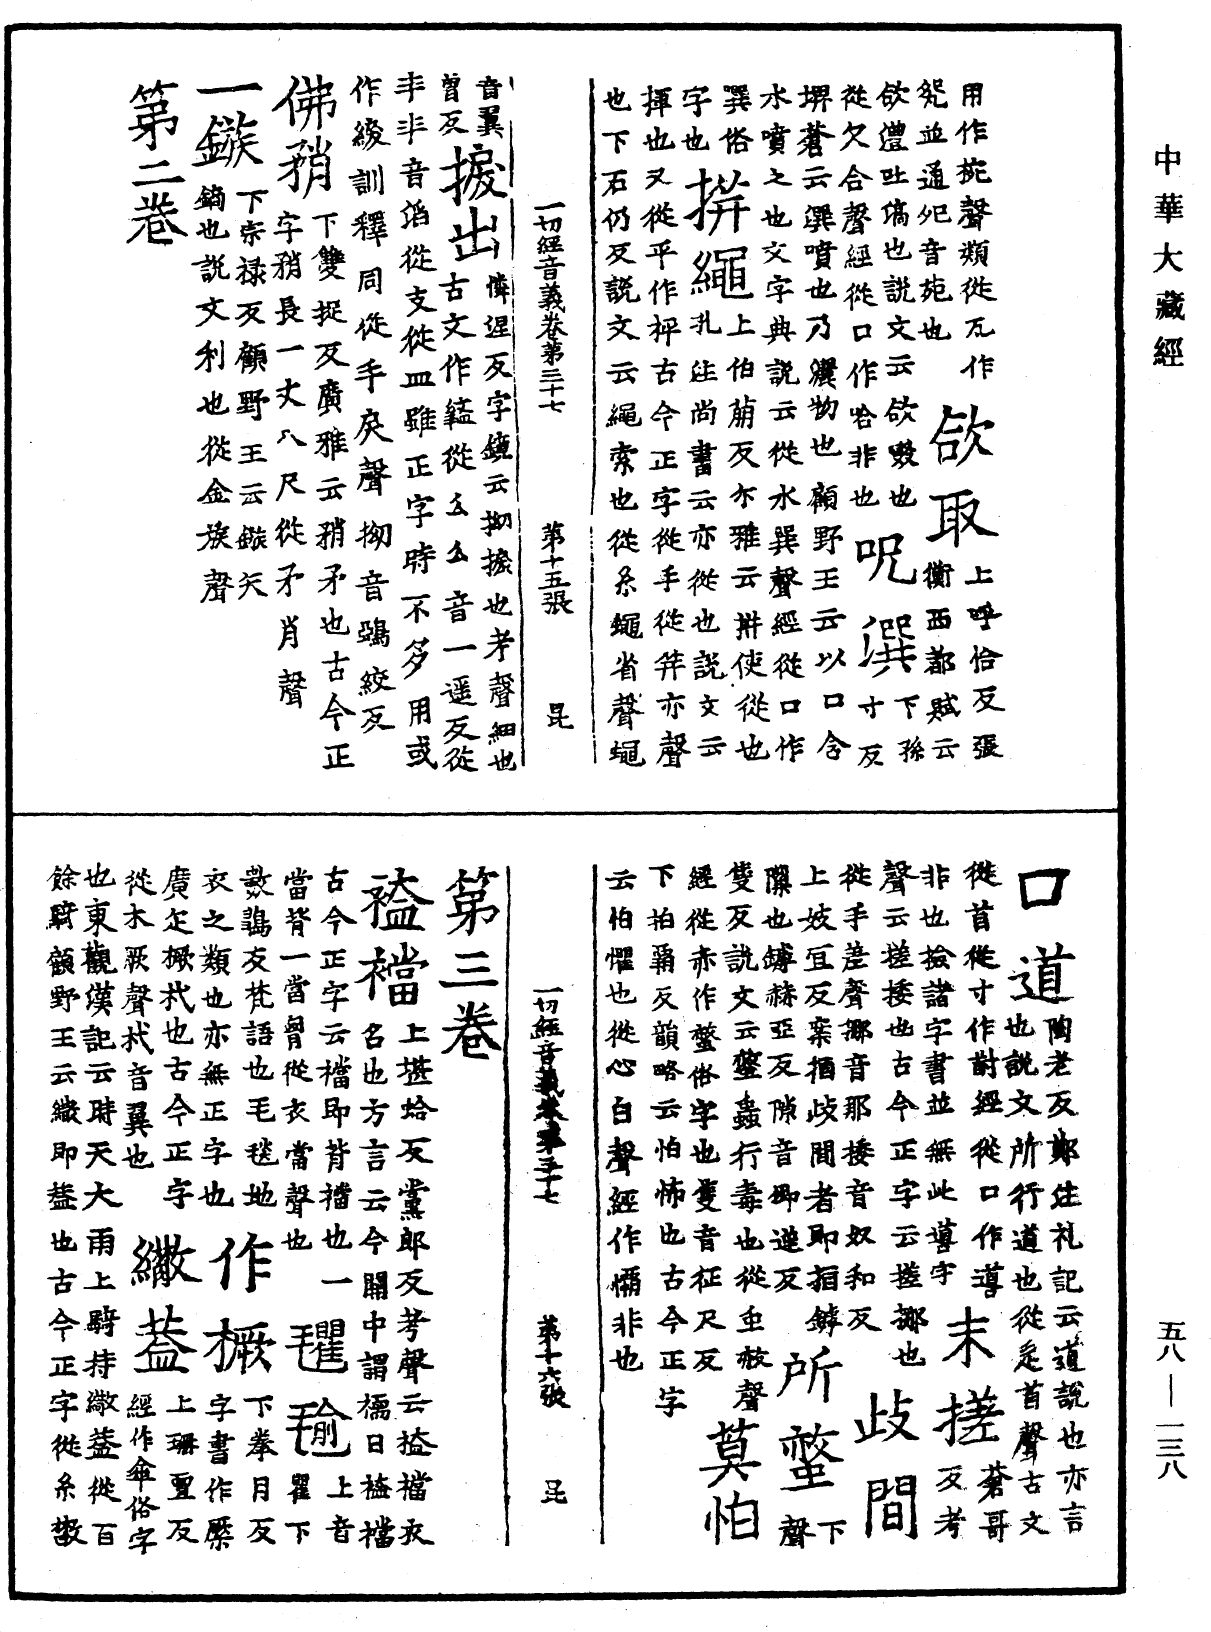 中華大藏經
用作㼝聲類從瓦作
㼝並通夗音苑也
欱取
上呼恰反張
衡西都賦云
欲澧吐滈也說文云欱歠也
從欠合聲經從口作哈非也
呪潠
下孫
寸反
堺蒼云潠噴也乃濺物也顧野王云以口含
水噴之也文字典說云從水巽聲經從口作
巽俗
字也
拼繩
上伯萠反尒雅云拼使從也
孔注尚書云亦從也說文云
揮也又從平作枰古今正字從手從并亦聲
也下石仍反說文云繩索也從糸蠅省聲蠅
一切經音義卷第三十七 第十五張 昆
音翼
曾反
捩出
憐涅反字鏡云拗捩也考聲細也
古文作盭從幺幺音一遥反從
半半音滔從支從皿雖正字時不多用或
作綟訓釋同從手戾聲拗音鵶絞反
佛矟
下雙捉反廣雅云矟矛也古今正
字矟長一丈八尺從矛肖聲
一鏃
下宗祿反顧野王云鏃矢
鏑也說文利也從金族聲
第二卷
口道
陶老反鄭注礼記云道說也亦言
也說文所行道也從辵首聲古文
從首從寸作對經從口作噵
非也撿諸字書並無此噵字
末搓
蒼哥
反考
聲云搓挼也古今正字云搓挪也
從手差聲挪音那挼音奴和反
歧間
下
上妓宜反案捫歧間者即指罅
隟也罅赫亞反隙音卿逆反
所螫
聲
隻反說文云螫蟲行毒也從虫赦聲
經從赤作螫俗字也隻音征尺反
莫怕
下拍罵反韻略云怕怖也古今正字
云怕懼也從心白聲經作㦬非也
一切經音義卷第三十七 第十六張 昆
第三卷
𧛾襠
上堪蛤反黨郎反考聲云𧛾襠衣
名也方言云今關中謂襦曰𧛾襠
古今正字云襠即背襠也一
當背一當胷從衣當聲也
氍毹
上音
瞿下
數蒭反梵語也毛毯地
衣之類也亦無正字也
作橛
下拳月反
字書作㮮
廣疋橛杙也古今正字
從木厥聲杙音翼也
繖蓋
上珊亶反
經作傘俗字
也東觀漢記云時天大雨上騎持繖蓋從百
餘騎顧野王云繖即蓋也古今正字從糸散
五八—一三八